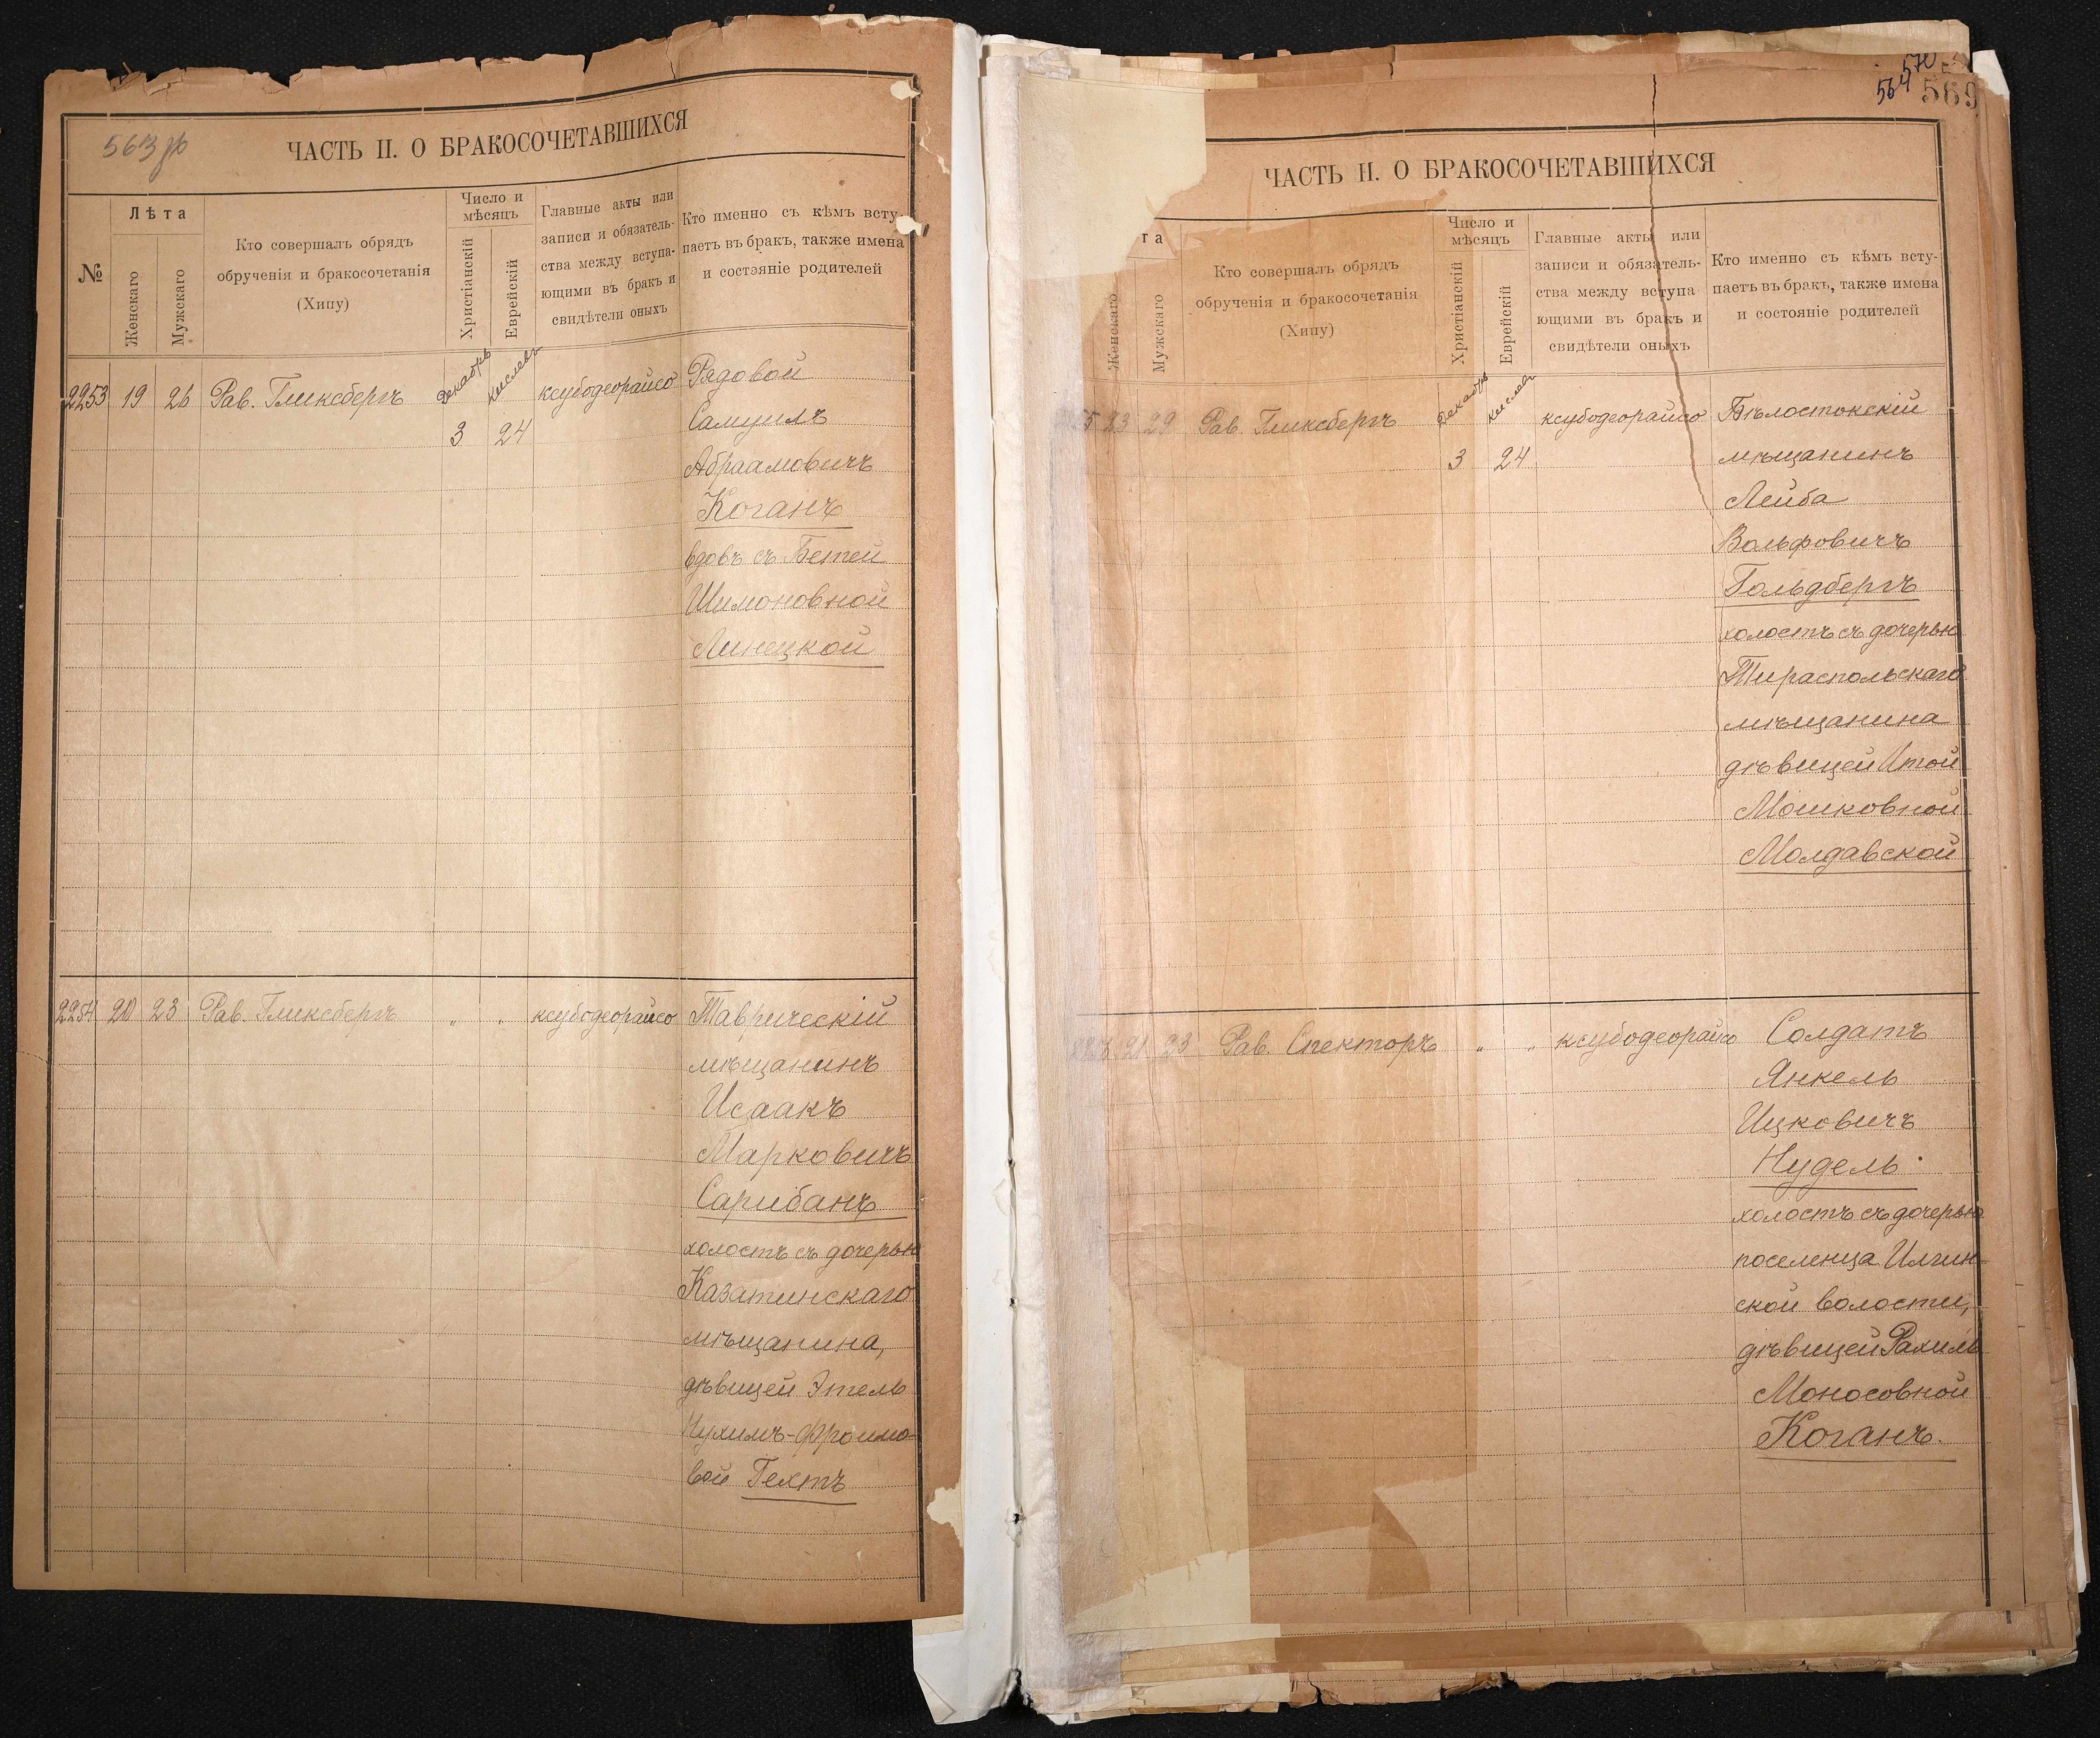 563 об
ЧАСТЬ II. О БРАКОСОЧЕТАВШИХСЯ
№
Лѣта
Женскаго
Мужскаго
Кто совершалъ обрядъ
обрученія и бракосочетанія
(Хипу)
Число и
мѣсяцъ
Христіанскій
Еврейскій
Главные акты или
записи и обязатель-
ства между вступа-
ющими въ бракъ и
свидѣтели оныхъ
Кто именно съ кѣмъ всту-
паетъ въ бракъ, также имена
и состэяніе родителей
2253 19 26 Рав. Гликсбергъ Декабрь Кислевъ ксубодеорайсо Рядовой
3 24 Самуилъ
Абраамовичъ
Коганъ
вдовъ съ Бетей
Шимоновной
Линецкой
2254 20 23 Рав. Гликсбергъ „ „ ксубодеорайсо Таврическій
мѣщанинъ
Исаакъ
Марковичъ
Сарибанъ
холостъ съ дочерью
Казатинскаго
мѣщанина,
дѣвицей Этель
Нухимъ-Фроимо-
вой Гехтъ
564
570
569
ЧАСТЬ II. О БРАКОСОЧЕТАВШИХСЯ
та
Женскаго
Мужскаго
Кто совершалъ обрядъ
обрученія и бракосочетанія
(Хипу)
Число и
мѣсяцъ
Христіанскій
Еврейскій
Главные акты или
записи и обязатель-
ства между вступа
ющими въ бракъ и
свидѣтели оныхъ
Кто именно съ кѣмъ всту-
паетъ въ бракъ, также имена
и состояніе родителей
23 29 Рав. Гликсбергъ Декабрь Кислевъ ксубодеорайсо Бѣлостокскій
3 24 мѣщанинъ
Лейба
Вольфовичъ
Гольдбергъ
холостъ съ дочерью
Тираспольскаго
мѣщанина
дѣвицей Итой
Мошковной
Молдавской
21 23 Рав. Спекторъ „ „ ксубодеорайсо Солдатъ
Янкель
Ицковичъ
Нудель
холостъ съ дочерью
поселенца Илгин-
ской волости,
дѣвицей Рахиль
Моносовной
Коганъ.